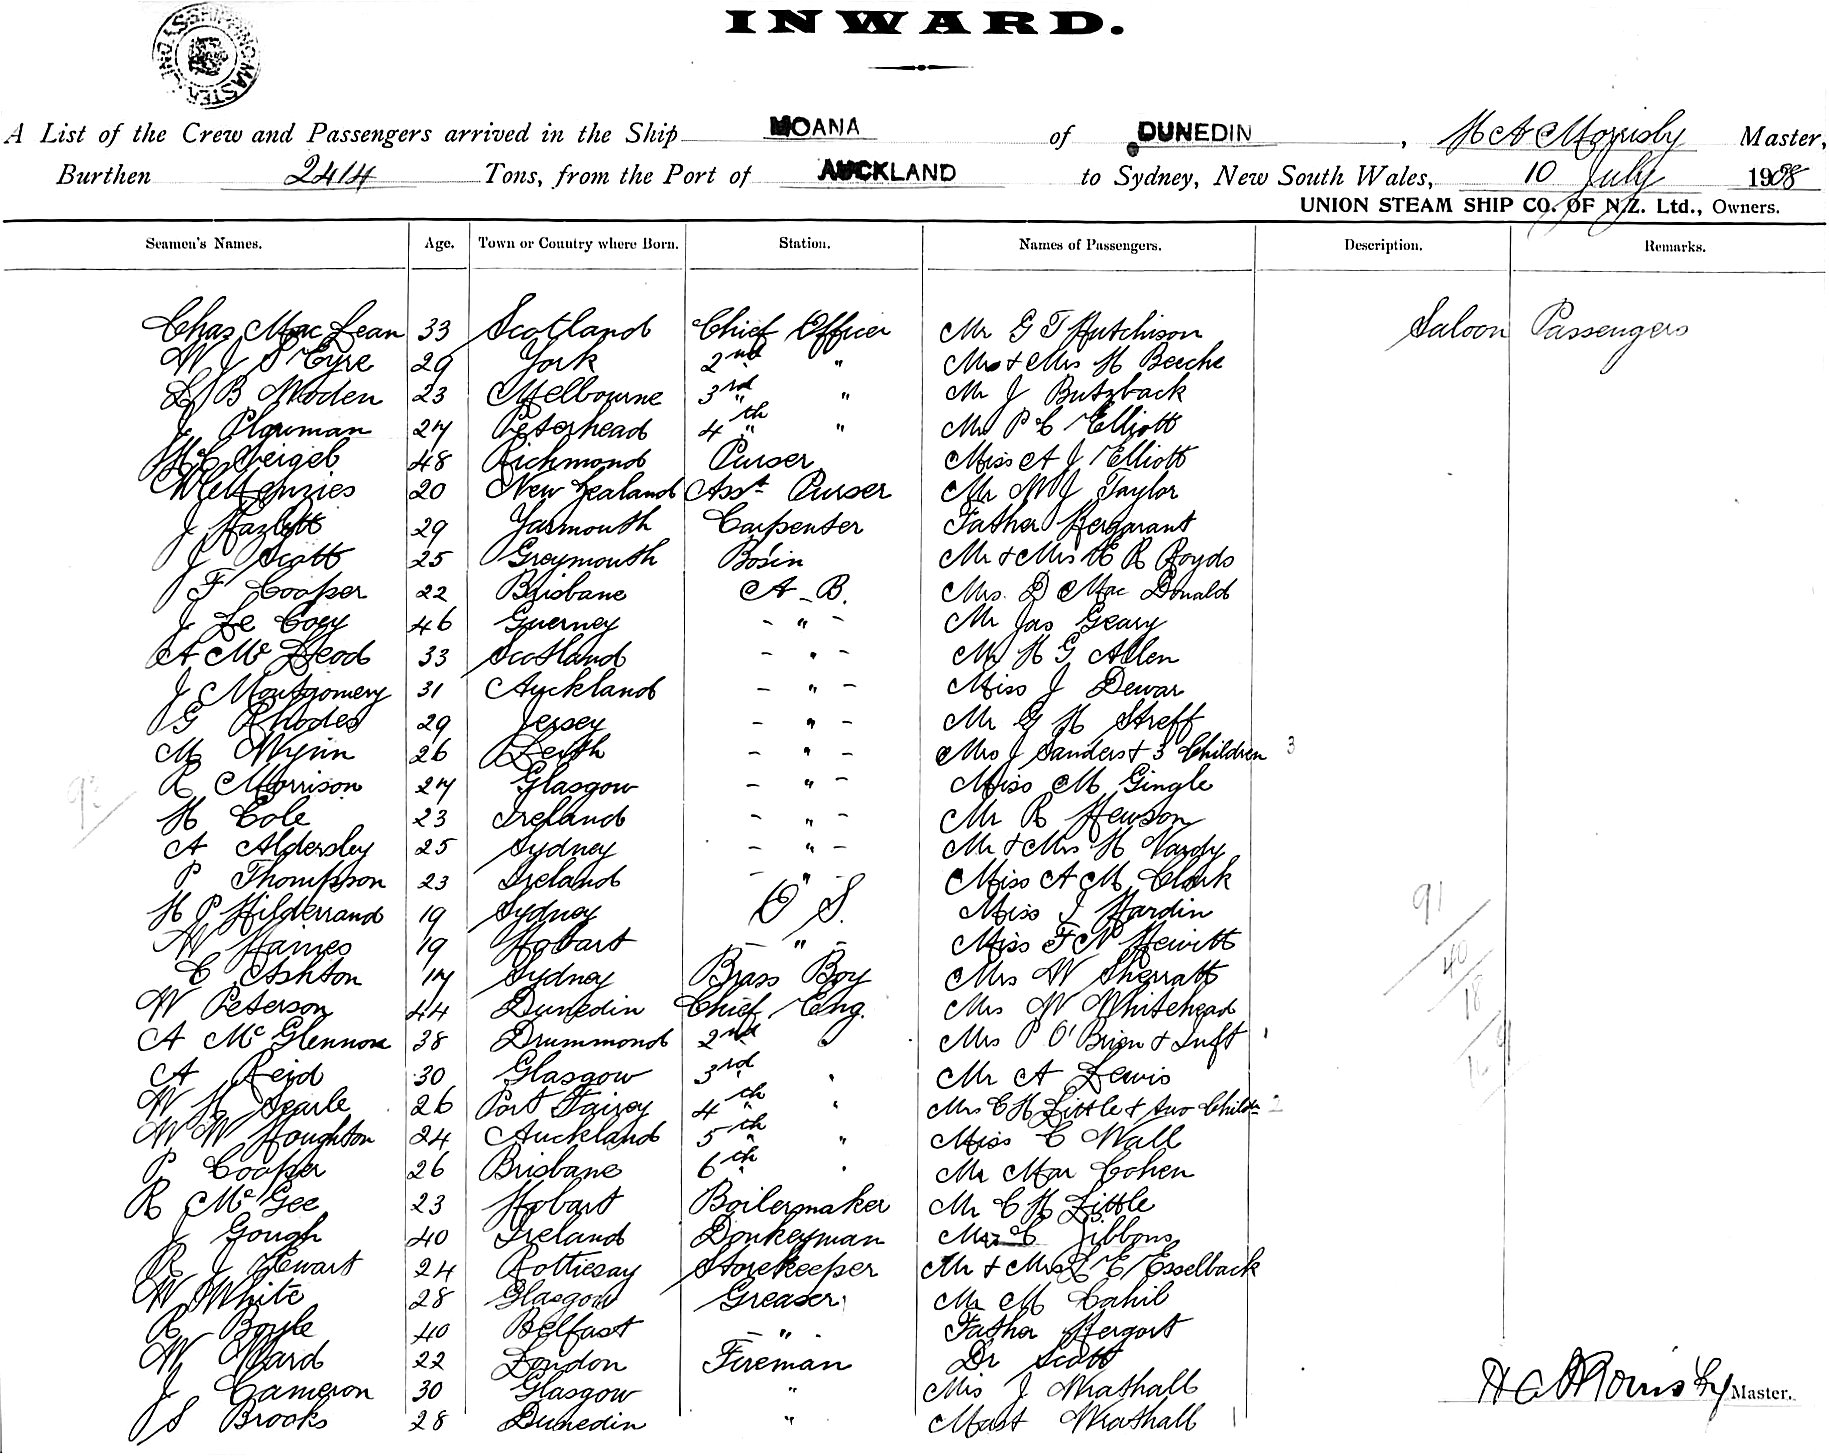 INWARD.
SHIPPING MASTER
A List of the Crew and Passengers arrived in the Ship MOANA of DUNEDIN, Master,
Burthen 2414 Tons, from the Port of AUCKLAND to Sydney, New South Wales, 10 July 1908
UNION STEAM SHIP CO. OF N.Z. Ltd., Owners.
Seamen's Names. Age. Town or Country where Born. Station. Names of Passengers. Description. Remarks.
Chas Mac Lean 33 Scotland Chief Officer Mr G T Hutchison Saloon Passengers
W J S Eyre 29 York 2nd " Mr & Mrs H Beeche
L B Woden 23 Melbourne 3rd " " Mr J Butzback
J Plowman 27 Peterhead 4th " " Mr P C Elliott
48 Richmond Purser Miss A J Elliott
McKenzies 20 New Zealand Asst Purser Mr W J Taylor
J Hazlett 29 Yarmouth Carpenter Father Hergarant
J Scott 25 Greymouth Bosin Mr & Mrs H R Royds
F Cooper 22 Brisbane A-B. Mrs. D Mac Donald
J Le Coey 46 Guerney - " - Mr Jas Geary
A Mc Leod 33 Scotland - " - Mr H G Allen
J Montgomery 31 Auckland - " - Miss J Dewar
G Rhodes 29 Jersey - " - Mr G H Streff
M Wynn 26 Leith - " - Mrs J Sanders & 3 Children 3
R Morrison 27 Glasgow - " - Miss M Gingle
H Cole 23 Ireland - " - Mr R Hewson
A Aldersley 25 Sydney - " - Mr & Mrs H Vardy
P Thompson 23 Ireland - " - Miss A M Clark
H P Hilderrand 19 Sydney O S. Miss J Hardin 91
W Haines 19 Hobart - " - Miss F N Hewitt
C Ashton 17 Sydney Brass Boy Mrs W Sherratt 40
W Peterson 44 Dunedin Chief Eng. Mrs W Whitehead 18
A Mc Glennon 38 Drummond 2nd " Mrs P O'Brien & Inft 1
A Reid 30 Glasgow 3rd " Mr A Lewis
W H Searle 26 Port Fairey 4th " Mrs C H Little & two Childn 2
W W Houghton 24 Auckland 5th " " Miss C Wall
P Cooper 26 Brisbane 6th " " Mr Mar Cohen
R Mc Gee 23 Hobart Boilermaker Mr C H Little
J Gough 40 Ireland Donkeyman Mrs C Jibbons
R J Stewart 24 Rottiesay Storekeeper Mr & Mrs L E Esselback
W White 28 Glasgow Greaser Mr M Cahil
R Boyle 40 Belfast - " - Father Hergort
W Ward 22 London Fireman Dr Scott
J Cameron 30 Glasgow " Mrs J Wrathall
J S Brooks 28 Dunedin " Mast Wrathall 1
Master.